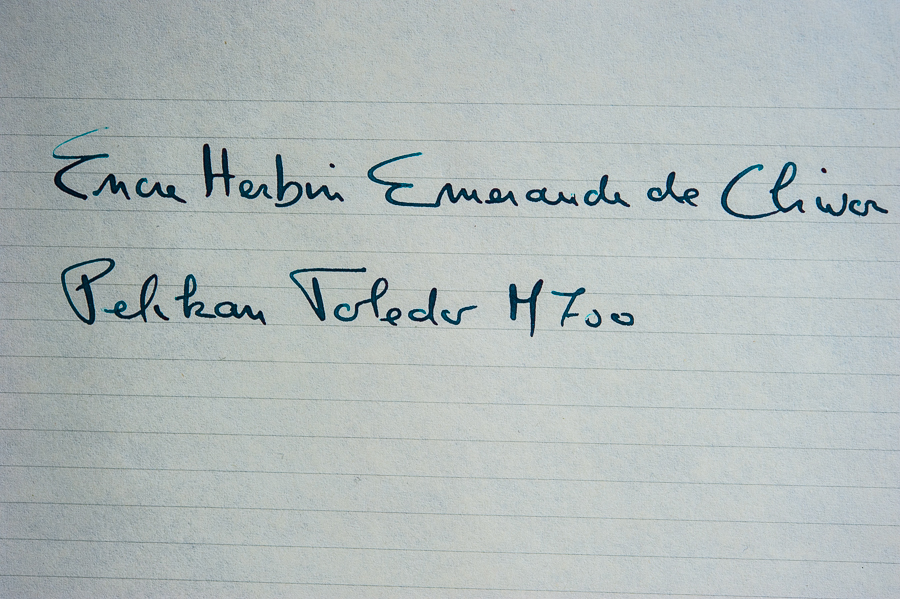 Encre Herbin Emeraude de Chivor
Pelikan Toledo M700